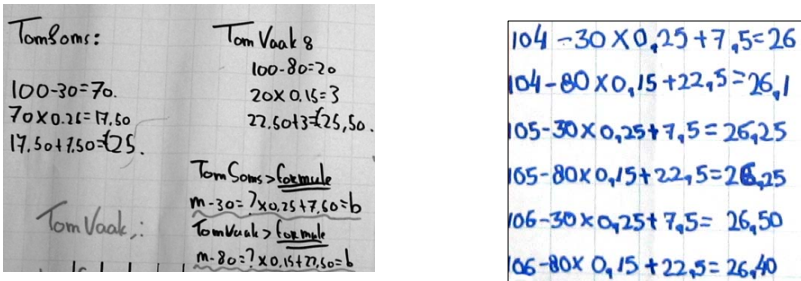 TomSoms:
100-30=70.
70x0.25=17.50
17.50+7.50=€25.
Tom Vaak,:
Tom Vaak 8
100-80=20
20x0.15=3
22.50+3=€25,50.
Tom Soms > formule
m-30=?x0,25+7,50=b
TomVaak > formule
m-80=?x0,15+22,50=b
104-30x0,25+7,5=26
104-80x0,15+22,5=26,1
105-30x0,25+7,5=26,25
105-80x0,15+22,5=26,25
106-30x0,25+7,5= 26,50
106-80x0,15+22,5=26,40